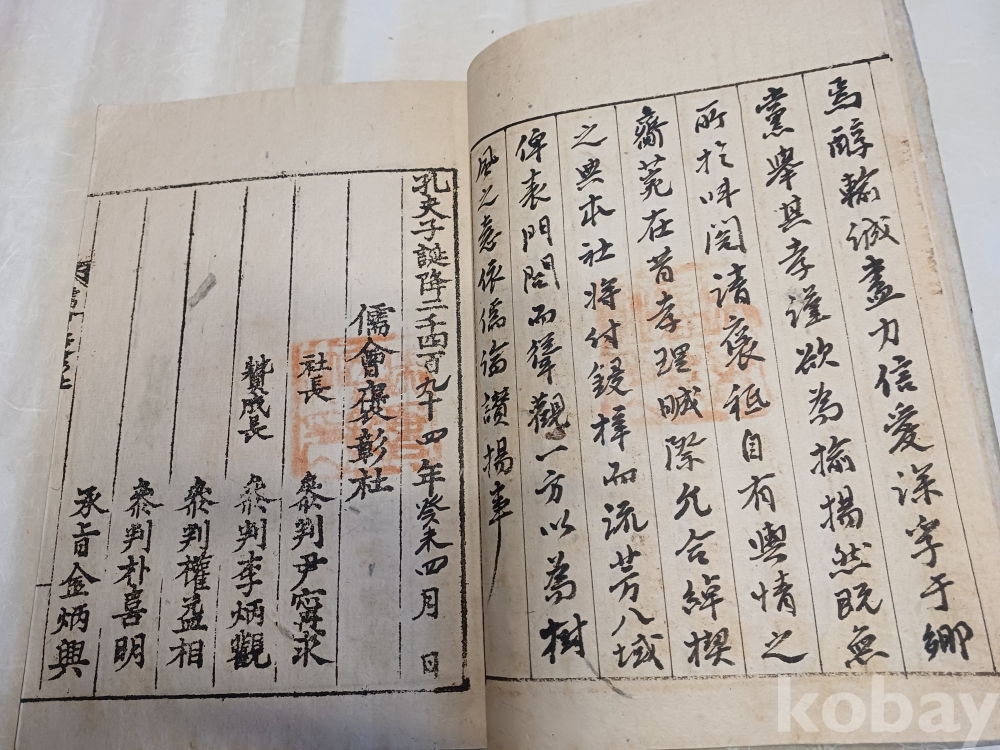 焉醇輸誠盡力信愛深孚于鄉
黨擧其孝謹欲爲揄揚然旣無
所於叫閤請褒秪自有輿情之
齋菀在昔孝理晠際允合綽楔
之典本社將付鋟梓而流芳八域
俾表門閭而聳觀一方以爲樹
風之意依儒論讚揚事
孔夫子誕降二千四百九十四年癸未四月 日
儒會褒彰社
社長 叅判尹甯求
贊成長 叅判李炳觀
叅判權益相
叅判朴喜明
承旨金炳興
kobay